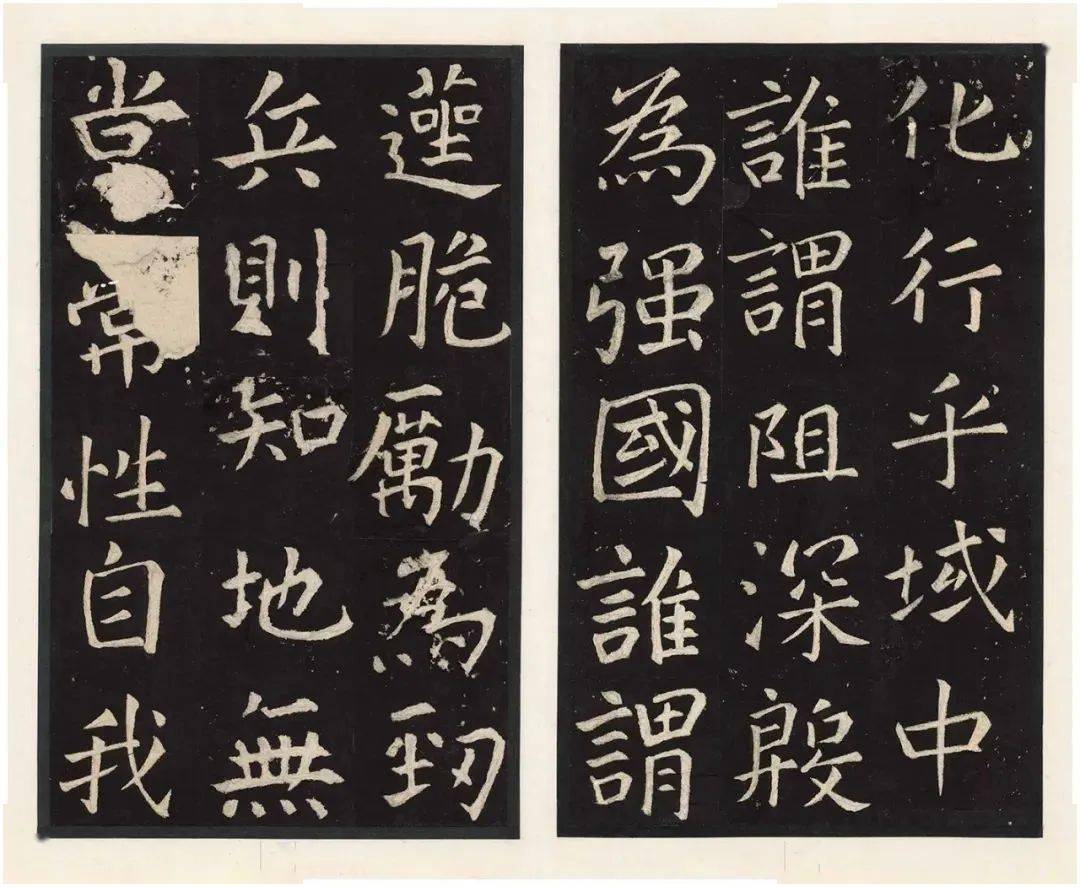 化行乎域中
誰謂阻深殷
為强國誰謂
遳脆勵為勁
兵則知地無
常常性自我